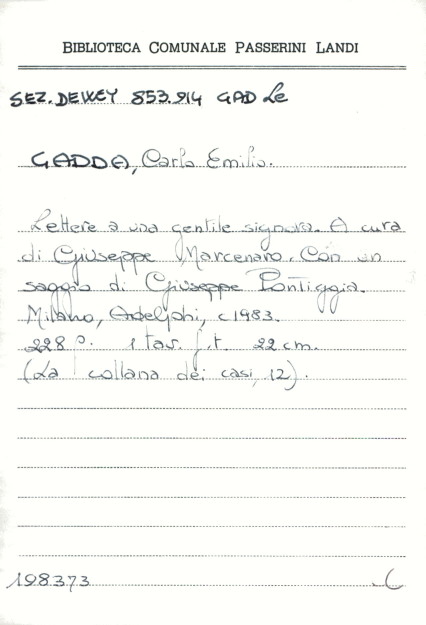 BIBLIOTECA COMUNALE PASSERINI LANDI
SEZ. DEWEY 853.914 GAD Le
GADDA, Carlo Emilio.
Lettere a una gentile signora. A cura
di Giuseppe Marcenaro. Con un
saggio di Giuseppe Pontiggia.
Milano, Adelphi, c1983.
228 p. 1 tav. f.t. 22 cm.
(La collana dei casi, 12).
198373